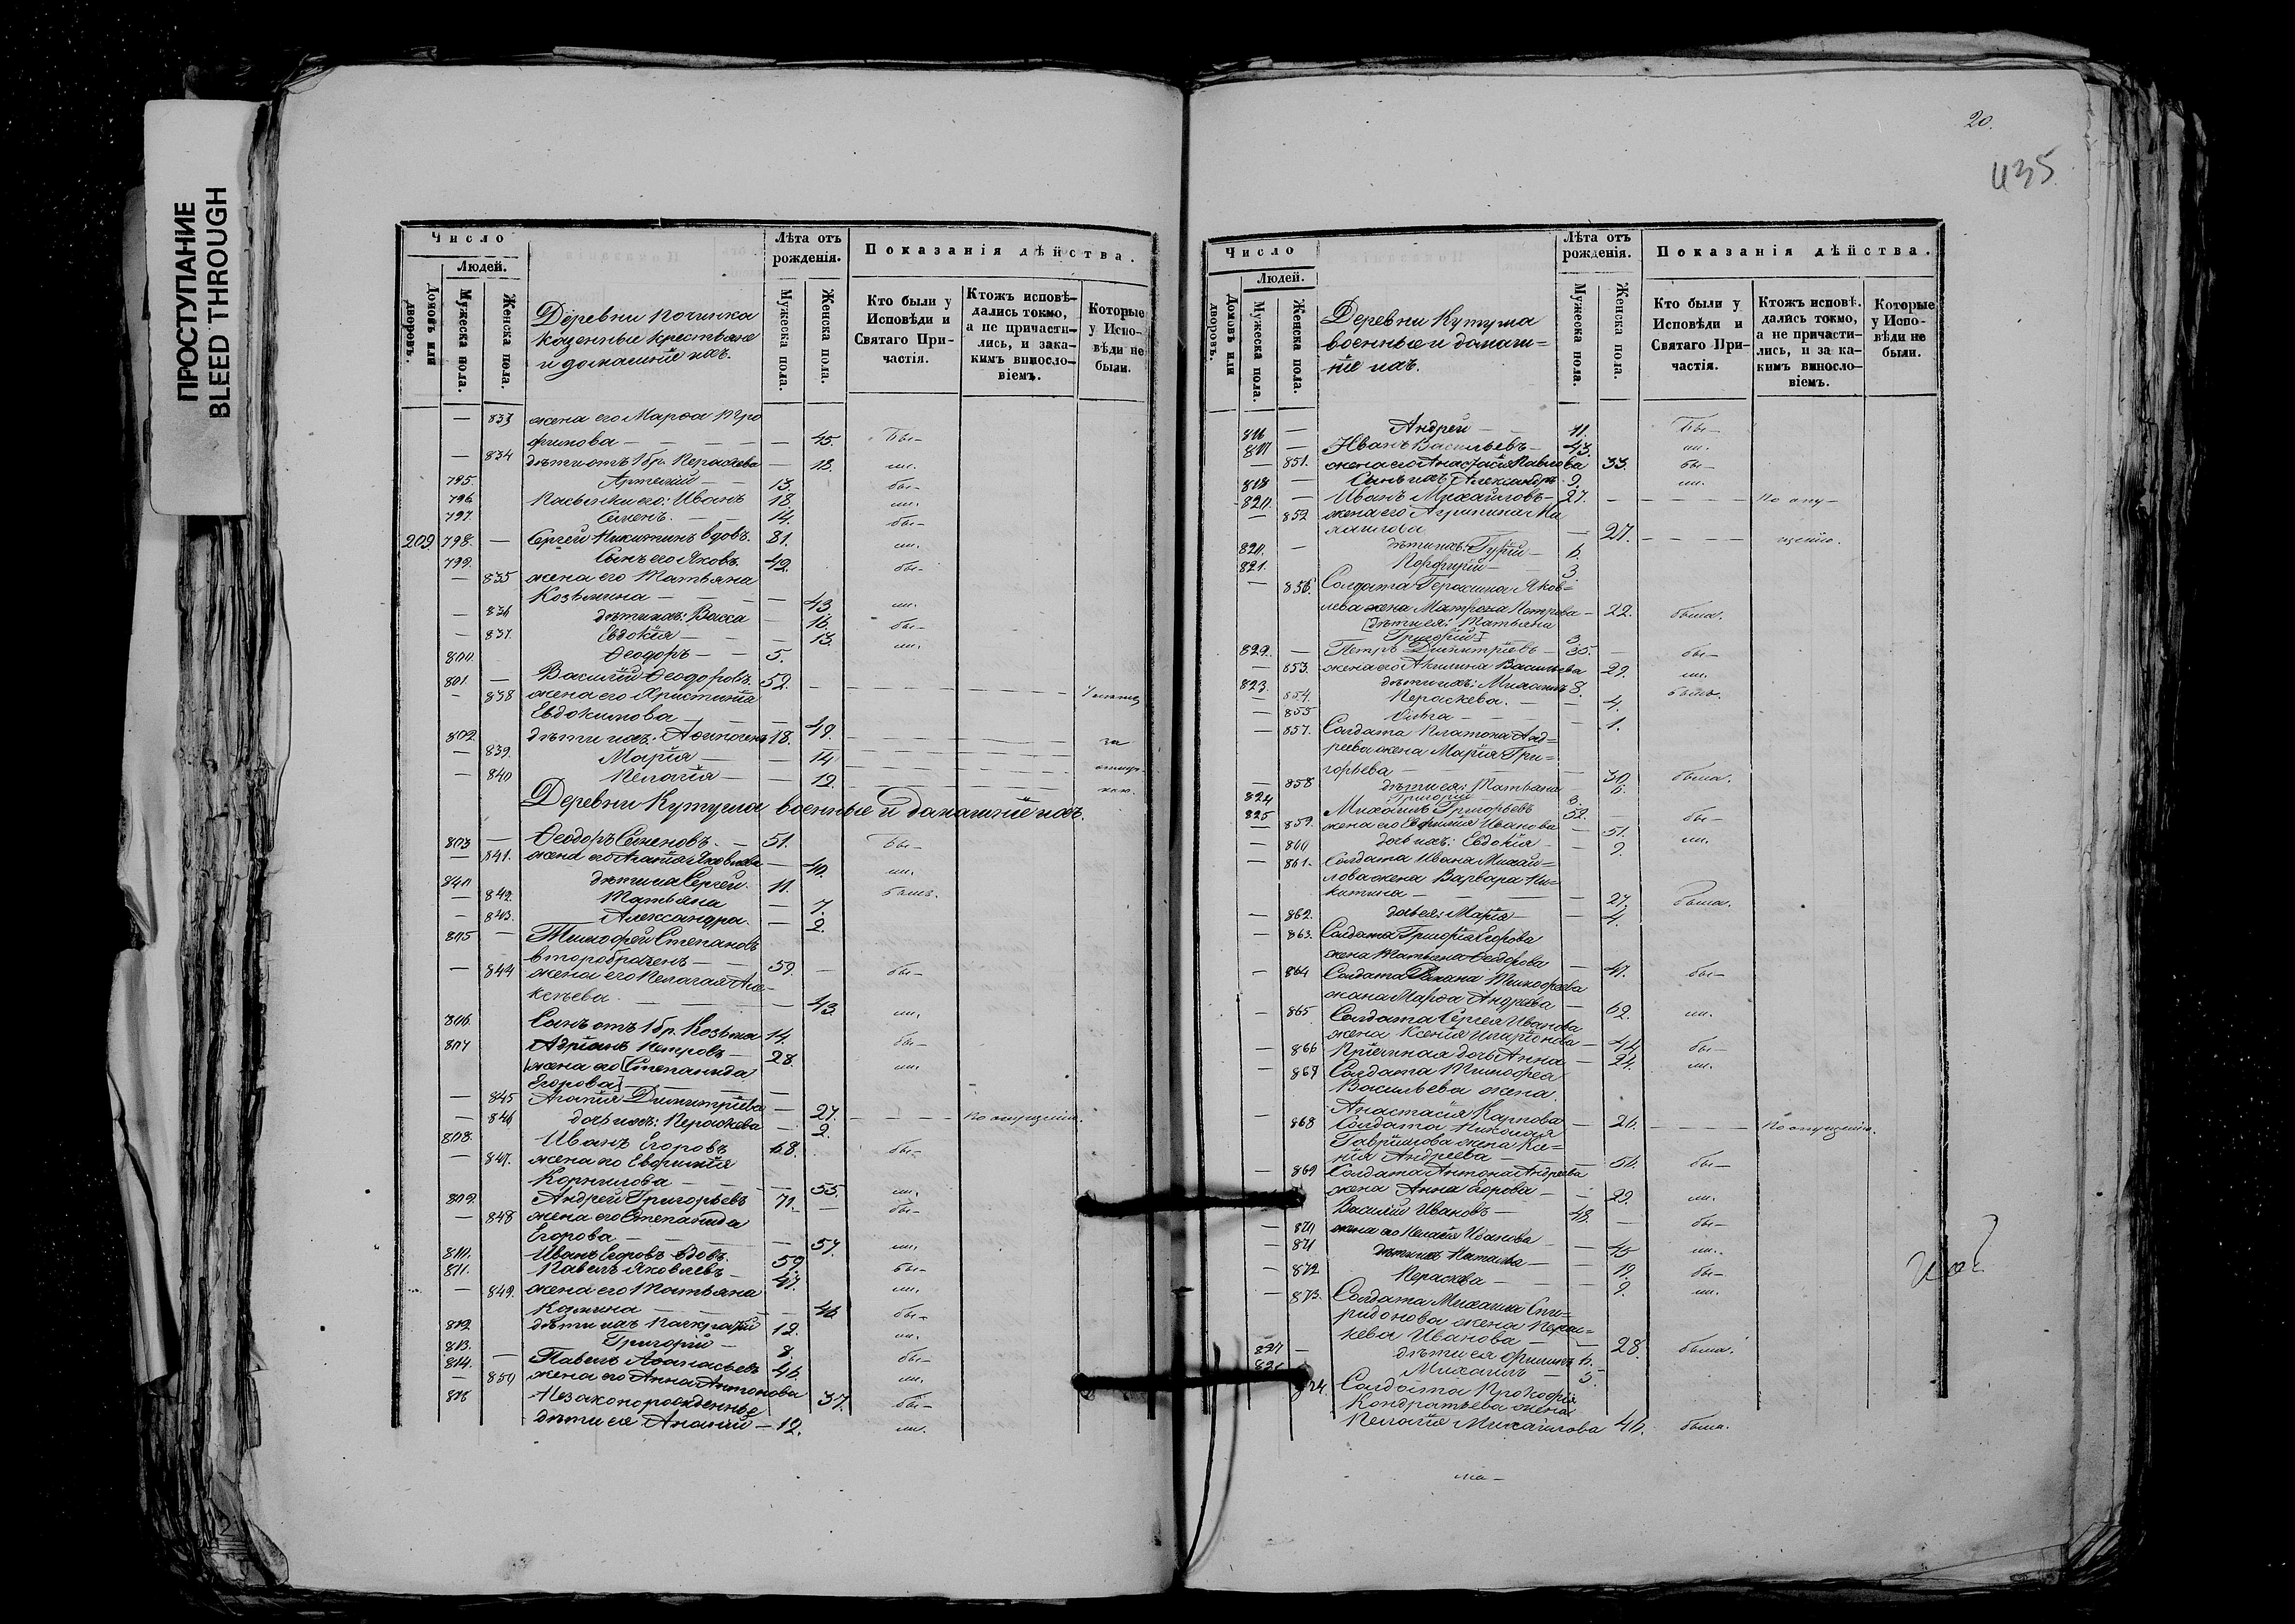 ПРОСТУПАНИЕ
BLEED THROUGH
Число
Людей.
Домовъ или дворовъ.
Мужеска пола.
Женска пола.
Деревни Починка
казенные крестьяне
и домашніе ихъ.
Лѣта отъ рожденія.
Мужеска пола.
Женска пола.
Показанія дѣйства.
Кто были у Исповѣди и Святаго Причастія.
Ктожъ исповѣдались токмо, а не причастились, и закакимъ винословіемъ.
Которые у Исповѣди не были.
— 833 жена его Марѳа Тро
фимова — — — — 45. Бы—
— 834 дѣти отъ 1 бр. Параскева — 18. ли.
795. Артемій — — 13. бы—
796 Пасынки его: Иванъ 18. ли.
797. Семенъ. — — 14. бы—
209. 798. — Сергей Никитинъ вдовъ. 81. ли.
799. Сынъ его Яковъ. 42. бы—
— 835 жена его Татьяна
Козьмина — — — — 43. ли.
— 836 дѣти ихъ: Васса — 16. бы—
— 837. Евдокія — — — 13. ли.
800. Ѳеодоръ — — 5.
801 — Василій Ѳеодоровъ. 52.
— 838 жена его Христина
Евдокимова — — — 49.
802. дѣти ихъ: Аѳиногенъ 18. за
— 839. Марія — — 14
— 840 Пелагія — — 12.
Деревни Кутуша военные и домашніе ихъ.
803 — Ѳеодоръ Семеновъ. — 51. Бы—
— 841. жена его Агаѳія Яковлева — 40. ли.
804 дѣти их Сергей. 11. были.
— 842. Татьяна — 7.
— 843. Александра. — 2.
805 — Тимофей Степановъ
второбраченъ — — 59. — бы—
— 844 жена его Пелагея Але
ксѣева. — — — 43. ли.
806. Сынъ отъ 1 бр. Козьма 14. бы—
807 Адріанъ Петровъ — 28. ли.
[жена его [Степанида]
Егорова]
— 845 Агаѳія Димитріева — 27. По опущенію.
— 846 дочь ихъ: Параскева — 2.
808. Иванъ Егоровъ 68. бы—
— 847. жена его Евфимія
Корнилова — — — 55. ли.
809. Андрей Григорьевъ 71. — бы—
— 848 жена его Степанида
Егорова — — — — 57. ли.
810. Иванъ Егоровъ вдовъ. 59. бы—
811. Павелъ Яковлевъ — 47. ли.
— 849. жена его Татьяна
Карпина — — — — 46 бы—
812. дѣти ихъ Панкратій 12. ли.
813. Григорій — 8. бы—
814. — Павелъ Аѳанасьевъ 46. ли.
— 850 жена его Анна Антонова 37. бы—
815 Незаконорожденные
дѣти ея Ананій — 12. ли.
20.
435
Число
Людей.
Домовъ или дворовъ.
Мужеска пола.
Женска пола.
Деревни Кутуша
военные и домаш=
ніе ихъ.
Лѣта отъ рожденія.
Мужеска пола.
Женска пола.
Показанія дѣйства.
Кто были у Исповѣди и Святаго Причастія.
Ктожъ исповѣдались токмо, а не причастились, и за какимъ винословіемъ.
Которые у Исповѣди не были.
816 — Андрей — — 11. Бы—
817 — Иванъ Васильевъ — 43. ли.
— 851. жена его Анастасія Павлова 33. бы—
818 — Сынъ ихъ Александръ 9. ли.
— Иванъ Михайловъ — 27. — — — По опу—
— 852 жена его Агрипина Ми
хайлова — 27. — — — щенію.
820. — дѣти ихъ: Гурій — 6.
821. Порфирій — — 3.
— 856. Солдата Герасима Яков=
лева жена Матрона Петрова — 22. была.
[дѣти ея: Татьяна
Григорій] 3.
822. — Петръ Димитріевъ — 30. — бы—
— 853. жена его Акилина Васильева 29. ли.
823. дѣти ихъ: Михаилъ 8. были.
— 854. Параскева. — — 4.
— 855 Ольга — — 1.
— 857. Солдата Платона Анд=
реева жена Марія Гри=
горьева — — 30. была.
— 858 дѣти ея: Татьяна 6.
824 Григорій — 3.
825 Михаилъ Григорьевъ 52. — бы—
— 859. жена его Евфимія Иванова — 51. ли.
— 860 дочь ихъ: Евдокія — 9.
— 861. Солдата Ивана Михай=
лова жена Варвара Ни=
китина — — — 27. была.
— 862. дочь ея: Марія — — 4.
— 863. Солдата Григорія Егорова
жена Татьяна Ѳеодорова — 47. бы—
— 864 Солдата Романа Тимофеева
жена Марѳа Андреева — 62. ли.
— 865 Солдата Сергея Иванова
жена Ксенія Иларіонова — 44. бы—
— 866 Пріемная дочь Анна — 24. ли.
— 867 Солдата Тимофея
Васильева жена.
Анастасія Карпова — 26. — — — По опущенію.
— 868 Солдата Николая
Гавріилова жена Ксе=
нія Андреева — — 56. бы—
— 869 Солдата Антона Андреева
жена Анна Егорова — — 29. ли.
Василій Ивановъ — 48. — бы—
— 870 жена его Пелагія Иванова — 45 ли.
— 871 дѣти ихъ Наталья — — 19. бы—
— 872 Параскева — — — 9. ли.
— 873. Солдата Михаила Спи=
ридонова жена Парас=
кева Иванова — — 28. была.
— дѣти ея Филиппъ 6.
Михаилъ — 5.
Солдата Прокофія
Кондратьева жена
Пелагія Михайлова 46. была.
ма—